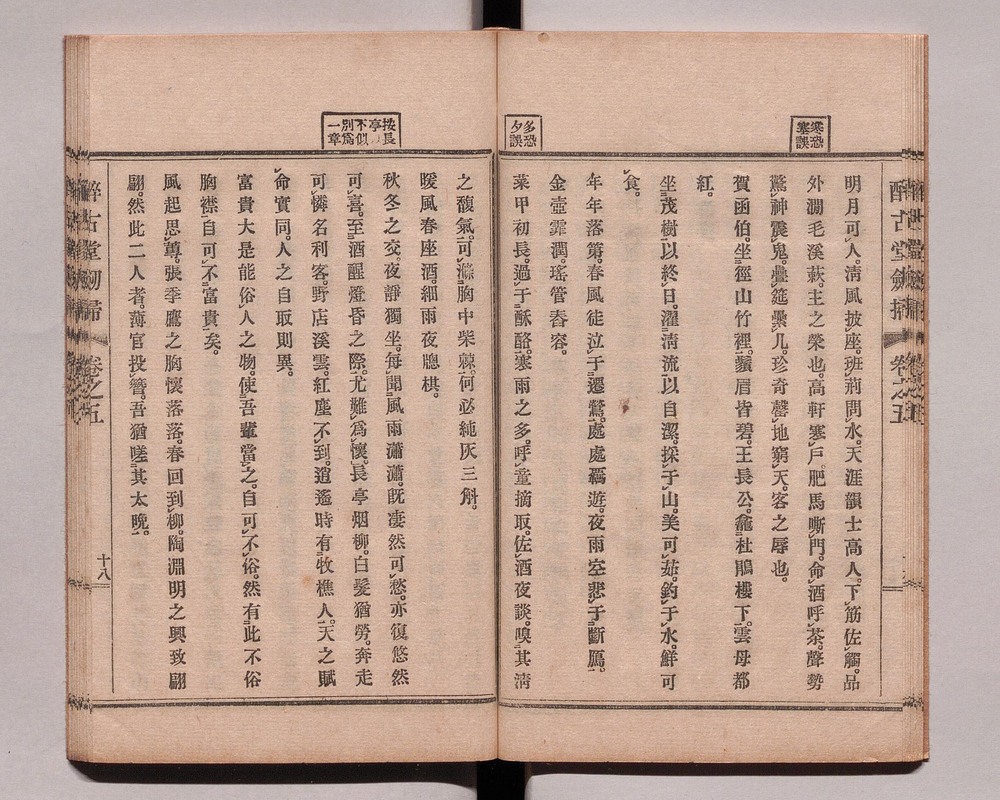 醉古堂劍掃
卷之五
寒恐
塞誤
多恐
夕誤
明月可人。清風披座。班荊問水。天涯韻士高人。下筯佐觴。品
外澗毛溪萩。主之榮也。高軒寒戶。肥馬嘶門。命酒呼茶。聲勢
驚神震鬼。疊筵累几。珍奇罄地窮天。客之辱也。
賀函伯。坐徑山竹裡。鬚眉皆碧。王長公。龕杜鵑樓下。雲母都
紅。
坐茂樹以終日。濯清流以自潔。採于山。美可茹。釣于水。鮮可
食。
年年落第。春風徒泣于遷鶯。處處羈遊。夜雨空悲于斷鴈。
金壺霏潤。瑤管春容。
菜甲初長。過于酥酪。寒雨之多。呼童摘取。佐酒夜談。嗅其清
按長
亭 
不似
別爲
一章
之馥氣。可滌胸中柴棘。何必純灰三斛。
暖風春座酒。細雨夜聰棋。
秋冬之交。夜靜獨坐。每聞風雨瀟瀟。既凄然可愁。亦復悠然
可喜。至酒醒燈昏之際。尤難爲懷。長亭烟柳。白髮猶勞。奔走
可憐名利客。野店溪雲。紅塵不到。逍遙時有牧樵人。天之賦
命實同。人之自取則異。
富貴大是能俗人之物。使吾輩當之。自可不俗。然有此不俗
胸襟。自可不富貴矣。
風起思蓴。張季鷹之胸懷落落。春回到柳。陶淵明之興致翩
翩。然此二人者。薄宦投簪。吾猶嗟其太晩。
醉古堂劍掃
卷之五
十八